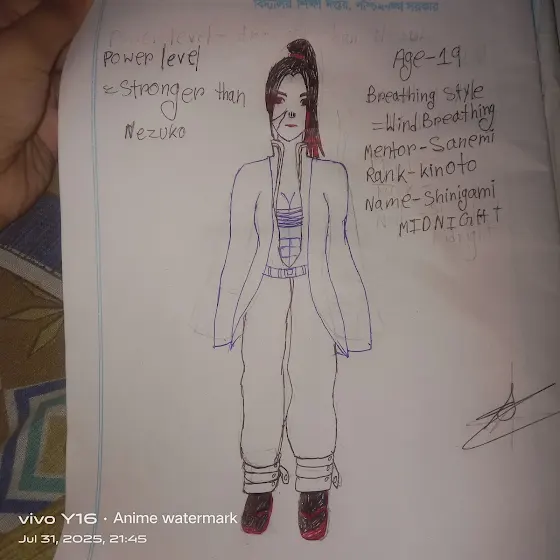 বিদ্যালয় শিক্ষা দপ্তর, পশ্চিমবঙ্গ সরকার
Power level
=Stronger than
Nezuko
Age-19
Breathing Style
=Wind Breathing
Mentor-Sanemi
Rank-kinoto
Name-Shinigami
MIDNIGHT
vivo Y16 · Anime watermark
Jul 31, 2025, 21:45